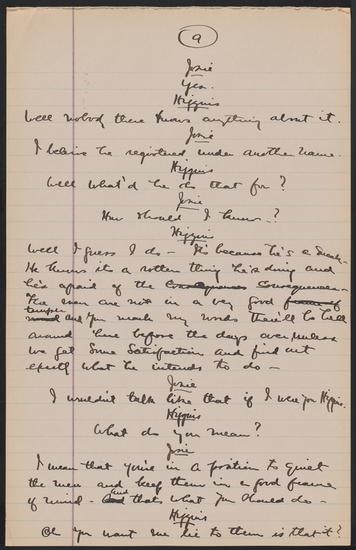 9
Josie
Yes.
Higgins
Well nobody there knows anything about it.
Josie
I believe he registered under another name.
Higgins
Well what'd he do that for?
Josie
How should I know?
Higgins
Well I guess I do – It's because he's a sneak.
He knows its a rotten thing he's doing and
he's afraid of the Consequences Consequences –
The men are not in a very good frame of
temper
mind and you mark my words there'll be hell
around here before the days over unless
we get some satisfaction and find out
exactly what he intends to do –
Josie
I wouldn't talk like that if I were you Higgins.
Higgins
What do you mean?
Josie
I mean that you're in a position to quiet
the men and keep them in a good frame
of mind – and thats what you should do –
Higgins
Oh you want me lie to them is that it?